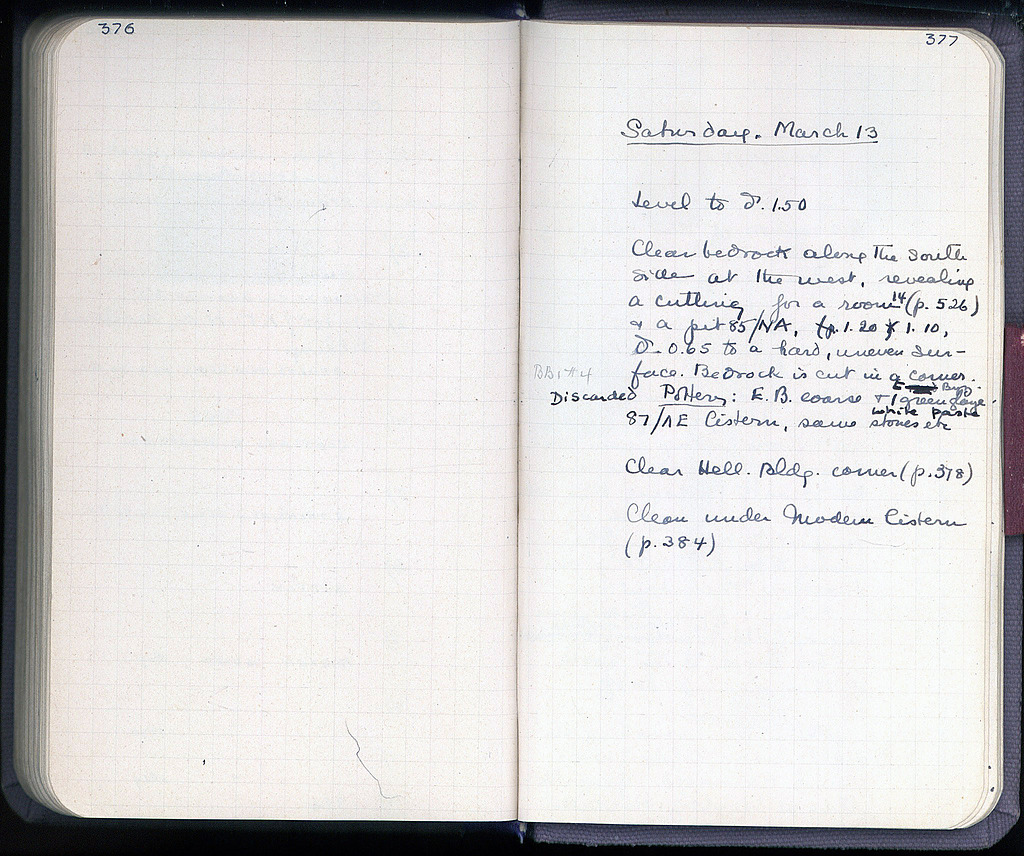 376
377
Saturday. March 13
Level to d. 1.50
Clear bedrock along the south
side at the west, revealing
a cutting for a room 14 (p. 526)
& a pit 85/NA, 1.20 x 1.10,
d. 0.65 to a hard, uneven sur-
face. Bedrock is cut in a corner.
BB1 #4
E Byz.
Discarded Pottery: E.B. coarse + 1 green glaze.
white paste
87/ΛE Cistern, some stones etc
Clear Hell. Bldg. corner (p. 378)
Clean under Modern Cistern
(p. 384)